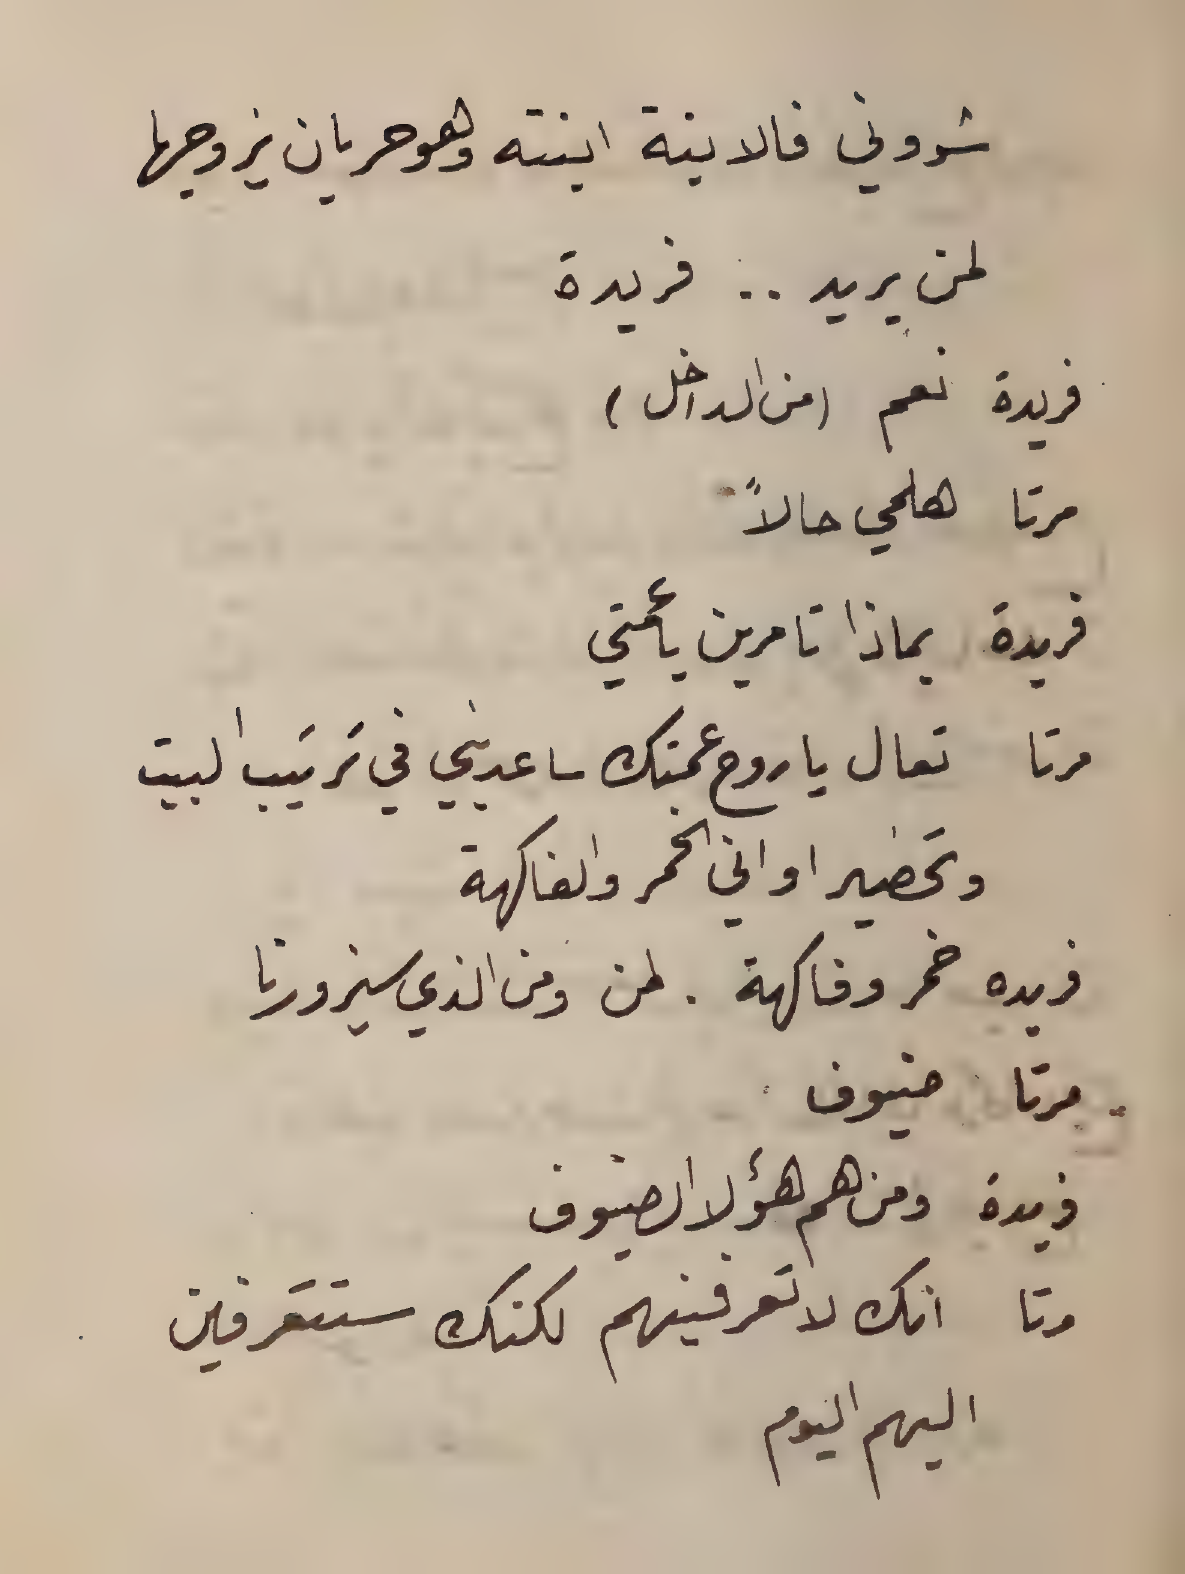 شووني فالابنة ابنته وهو حر بان يزوجها
لمن يريد .. فريدة
فريدة نعم (من الداخل)
مرتا هلمي حالاً
فريدة بماذا تامرين يا عمتي
مرتا تعال يا روح عمتك ساعديني في ترتيب البيت
وتحضير اواني الخمر والفاكهة
فريده خمر وفاكهة . لمن ومن الذي سيزورنا
مرتا ضيوف
فريدة ومن هم هؤلا الضيوف
مرتا انك لا تعرفينهم لكنك ستتعرفين
اليهم اليوم